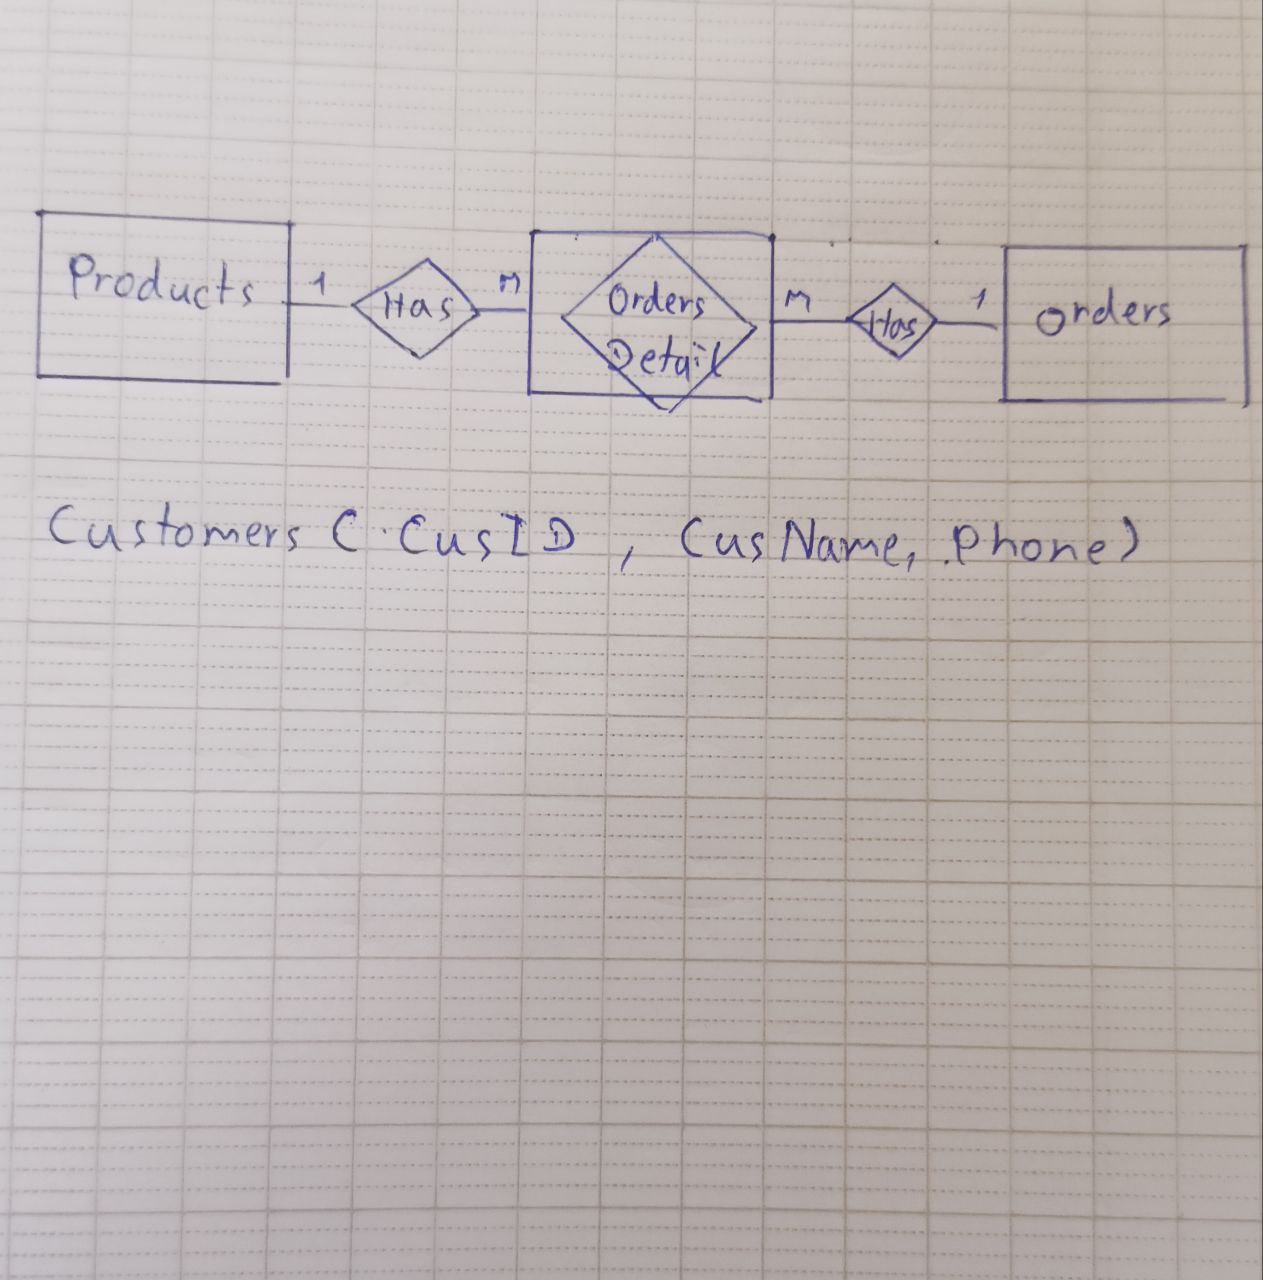 Products 1 Has M Orders M Has 1 Orders
Detail
Customers ( CusID , CusName, Phone)